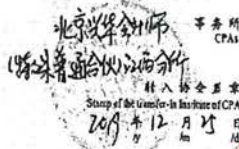 北京兴华会计师 事务所
CPAs
(特殊普通合伙)江西分所
转入协会盖章
Stamp of the transfer-in Institute of CPAs
2019年12月25日
/y /m /d